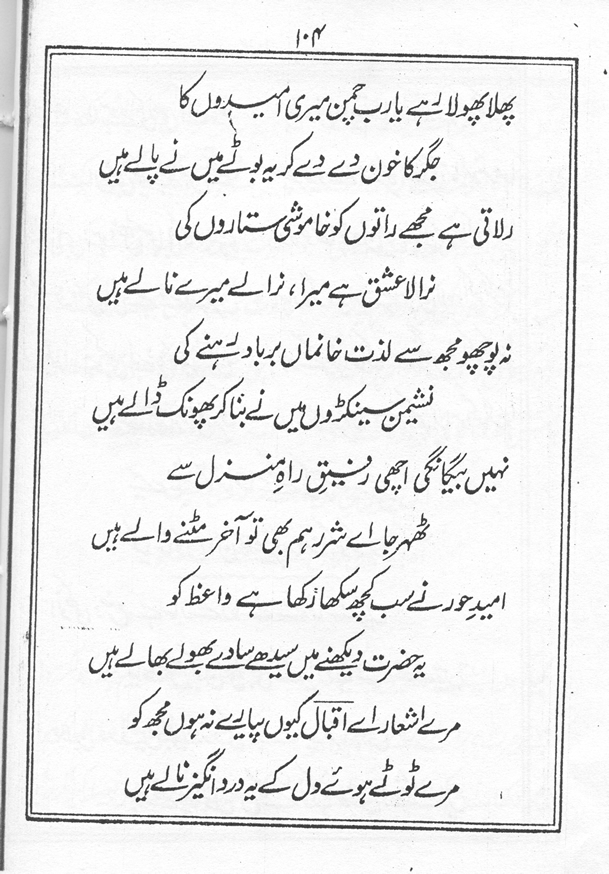 ۱۰۴
پھلا پھولا رہے یا رب چمن میری امیدوں کا
جگر کا خون دے دے کر یہ بوٹے میں نے پالے ہیں
رلاتی ہے مجھے راتوں کو خاموشی ستاروں کی
نرالا عشق ہے میرا، نرالے میرے نالے ہیں
نہ پوچھو مجھ سے لذت خانماں برباد رہنے کی
نشیمن سینکڑوں میں نے بنا کر پھونک ڈالے ہیں
نہیں بیگانگی اچھی رفیقِ راہِ منزل سے
ٹھہر جا اے شرر ہم بھی تو آخر مٹنے والے ہیں
امیدِ حور نے سب کچھ سکھا رکھا ہے واعظ کو
یہ حضرت دیکھنے میں سیدھے سادے بھولے بھالے ہیں
مرے اشعار اے اقبال کیوں پیارے نہ ہوں مجھ کو
مرے ٹوٹے ہوئے دل کے یہ درد انگیز نالے ہیں